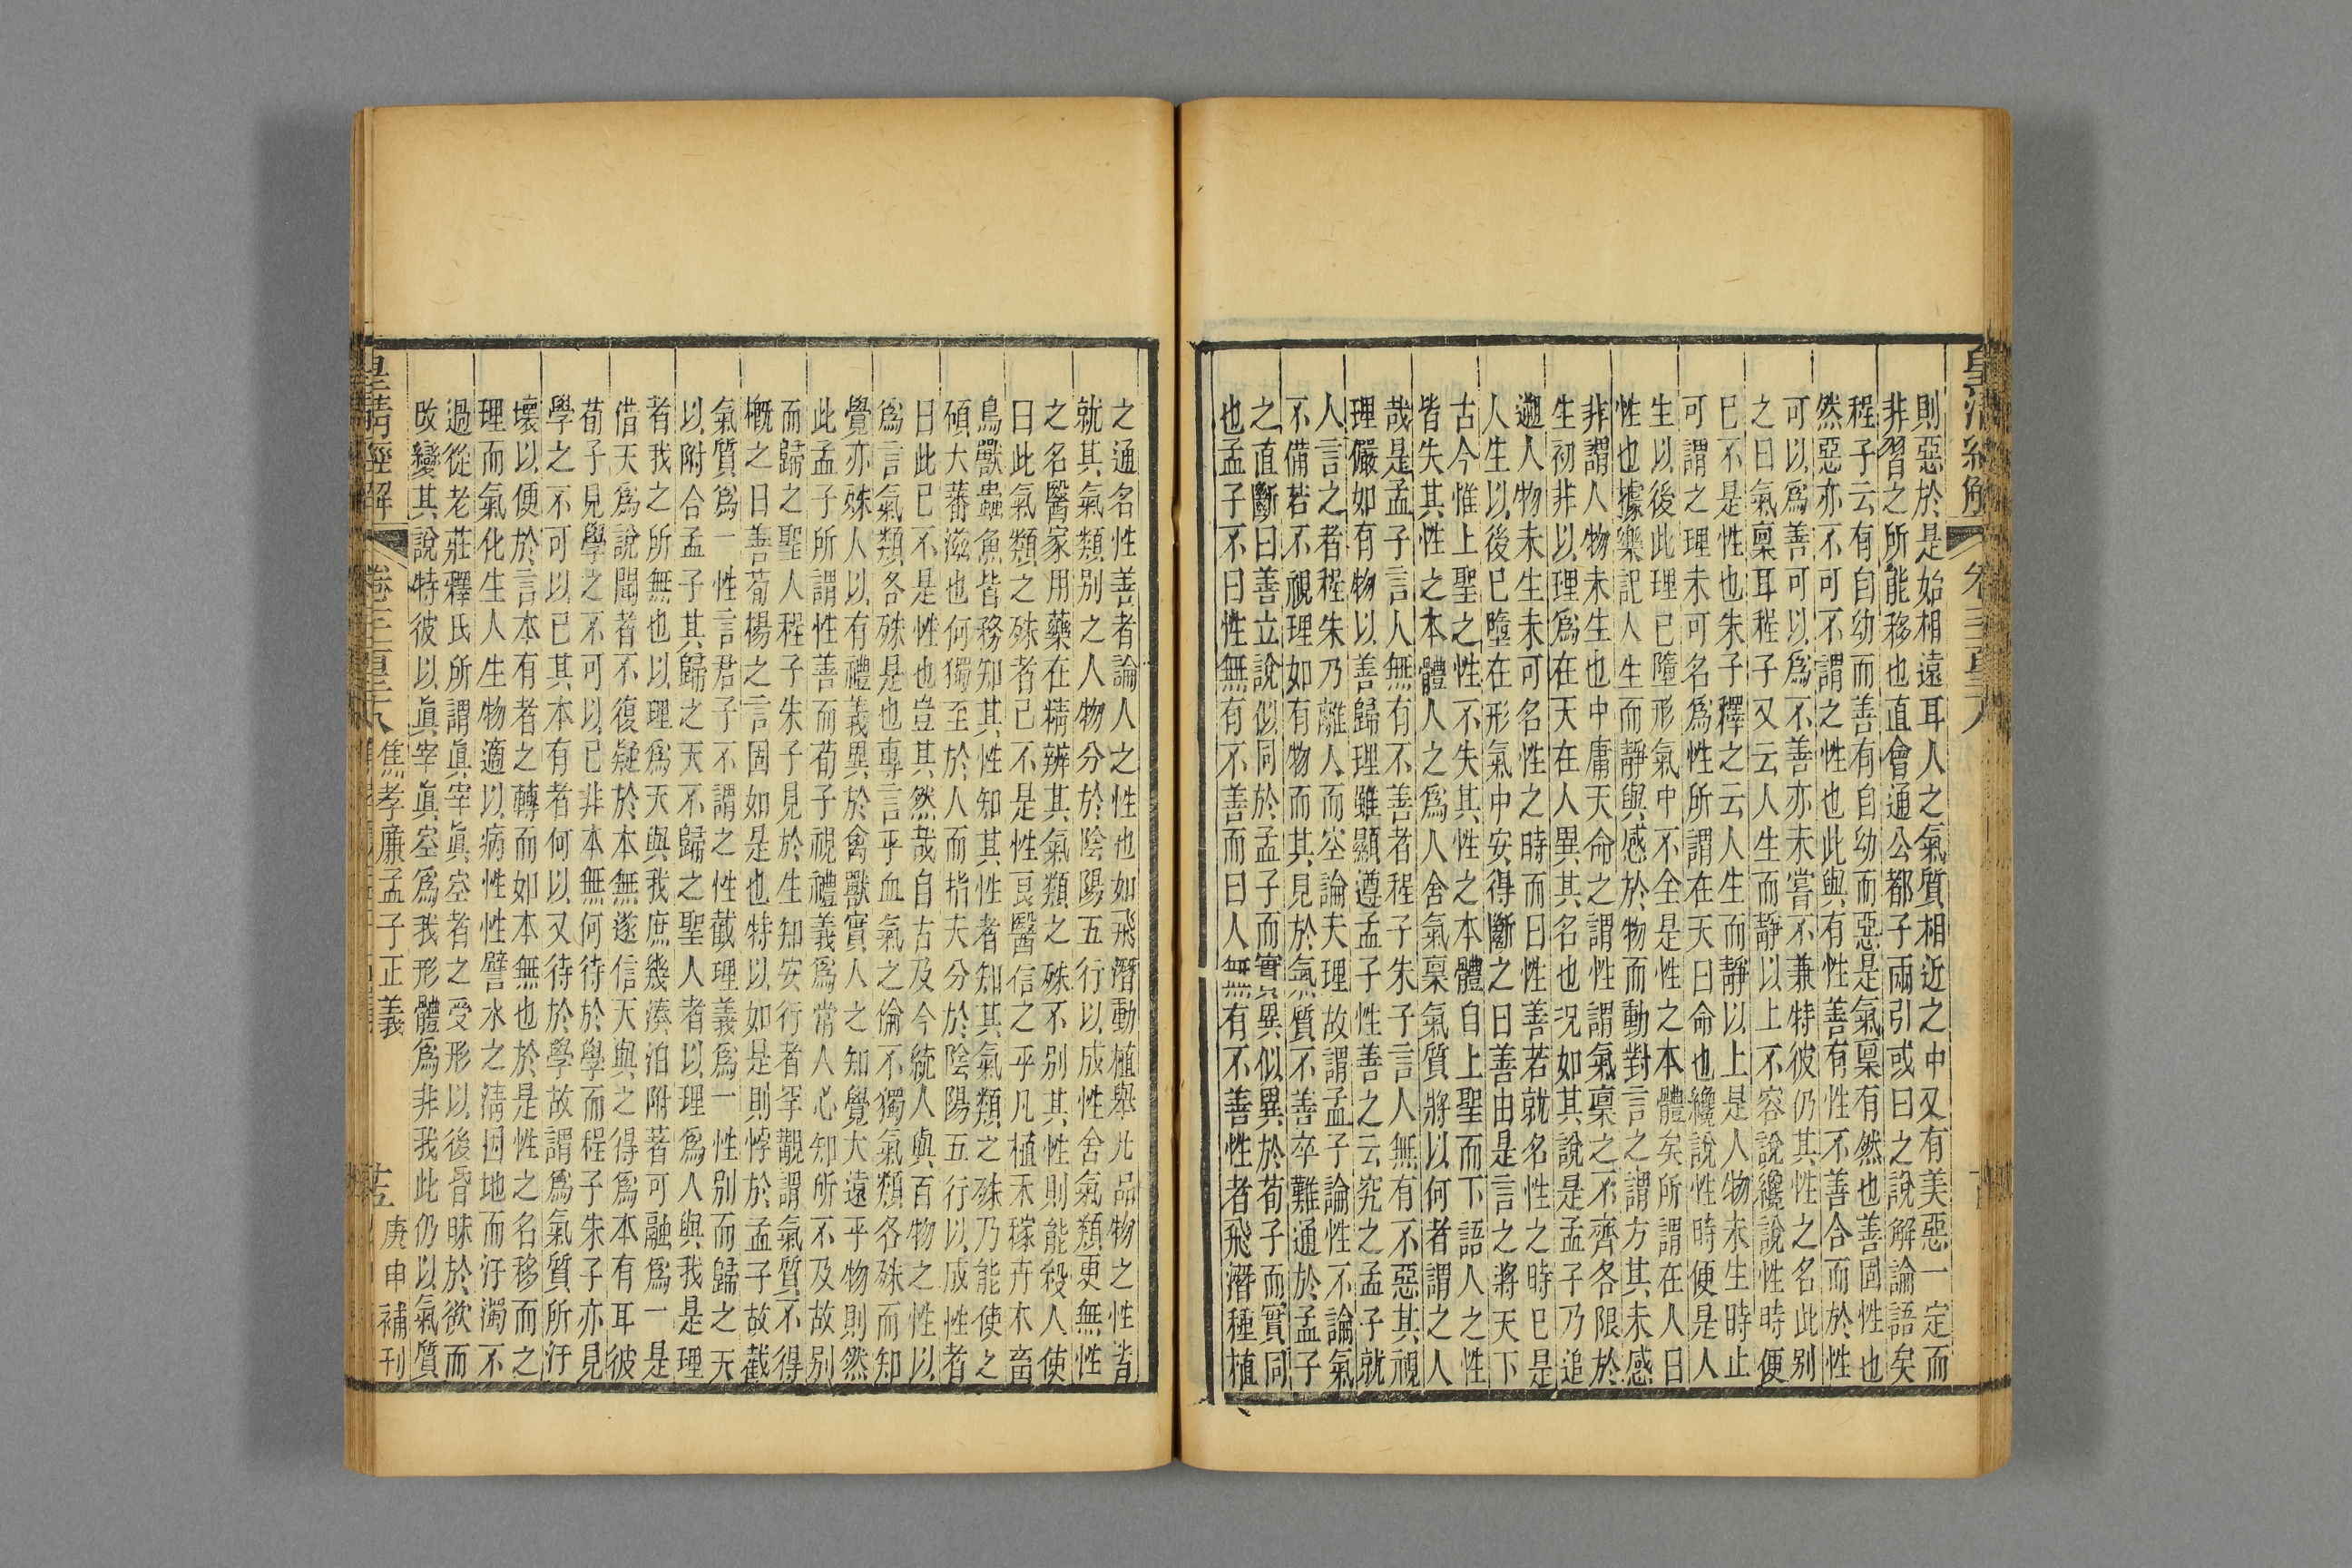 則惡於是始相遠耳人之氣質相近之中又有美惡一定而
非習之所能移也直會通公都子兩引或曰之說解論語矣
程子云有自幼而善有自幼而惡是氣稟有然也善固性也
然惡亦不可不謂之性也此與有性善有性不善合而於性
可以爲善可以爲不善亦未嘗不兼特彼仍其性之名此別
之曰氣稟耳程子又云人生而靜以上不容說纔說性時便
已不是性也朱子釋之云人生而靜以上是人物未生時止
可謂之理未可名爲性所謂在天曰命也纔說性時便是人
生以後此理已墮形氣中不全是性之本體矣所謂在人曰
性也據樂記人生而靜與感於物而動對言之謂方其未感
非謂人物未生也中庸天命之謂性謂氣稟之不齊各限於
生初非以理爲在天在人異其名也況如其說是孟子乃追
遡人物未生未可名性之時而曰性善若就名性之時已是
人生以後已墮在形氣中安得斷之曰善由是言之將天下
古今惟上聖之性不失其性之本體自上聖而下語人之性
皆失其性之本體人之爲人舍氣稟氣質將以何者謂之人
哉是孟子言人無有不善者程子朱子言人無有不惡其視
理儼如有物以善歸理雖顯遵孟子性善之云究之孟子就
人言之者程朱乃離人而空論夫理故謂孟子論性不論氣
不備若不視理如有物而其見於氣質不善卒難通於孟子
之直斷曰善立說似同於孟子而實異似異於荀子而實同
也孟子不曰性無有不善而曰人無有不善性者飛潛種植
之通名性善者論人之性也如飛潛動植舉凡品物之性皆
就其氣類別之人物分於陰陽五行以成性舍氣類更無性
之名醫家用藥在精辨其氣類之殊不別其性則能殺人使
曰此氣類之殊者已不是性良醫信之乎凡植禾稼卉木畜
鳥獸蟲魚皆務知其性知其性者知其氣類之殊乃能使之
碩大蕃滋也何獨至於人而指夫分於陰陽五行以成性者
曰此已不是性也豈其然哉自古及今統人與百物之性以
爲言氣類各殊是也專言乎血氣之倫不獨氣類各殊而知
覺亦殊人以有禮義異於禽獸實人之知覺大遠乎物則然
此孟子所謂性善而荀子視禮義爲常人心知所不及故別
而歸之聖人程子朱子見於生知安行者罕覯謂氣質不得
概之曰善荀楊之言固如是也特以如是則悖於孟子故截
氣質爲一性言君子不謂之性截理義爲一性別而歸之天
以附合孟子其歸之天不歸之聖人者以理爲人與我是理
者我之所無也以理爲天與我庶幾湊泊附著可融爲一是
借天爲說聞者不復疑於本無遂信天與之得爲本有耳彼
荀子見學之不可以已非本無何待於學而程子朱子亦見
學之不可以已其本有者何以又待於學故謂爲氣質所汙
壞以便於言本有者之轉而如本無也於是性之名移而之
理而氣化生人生物適以病性性譬水之淸因地而汙濁不
過從老莊釋氏所謂眞宰眞空者之受形以後昏昧於欲而
改變其說特彼以眞宰眞空爲我形體爲非我此仍以氣質
皇清經解
焦孝廉孟子正義
庚申補刊